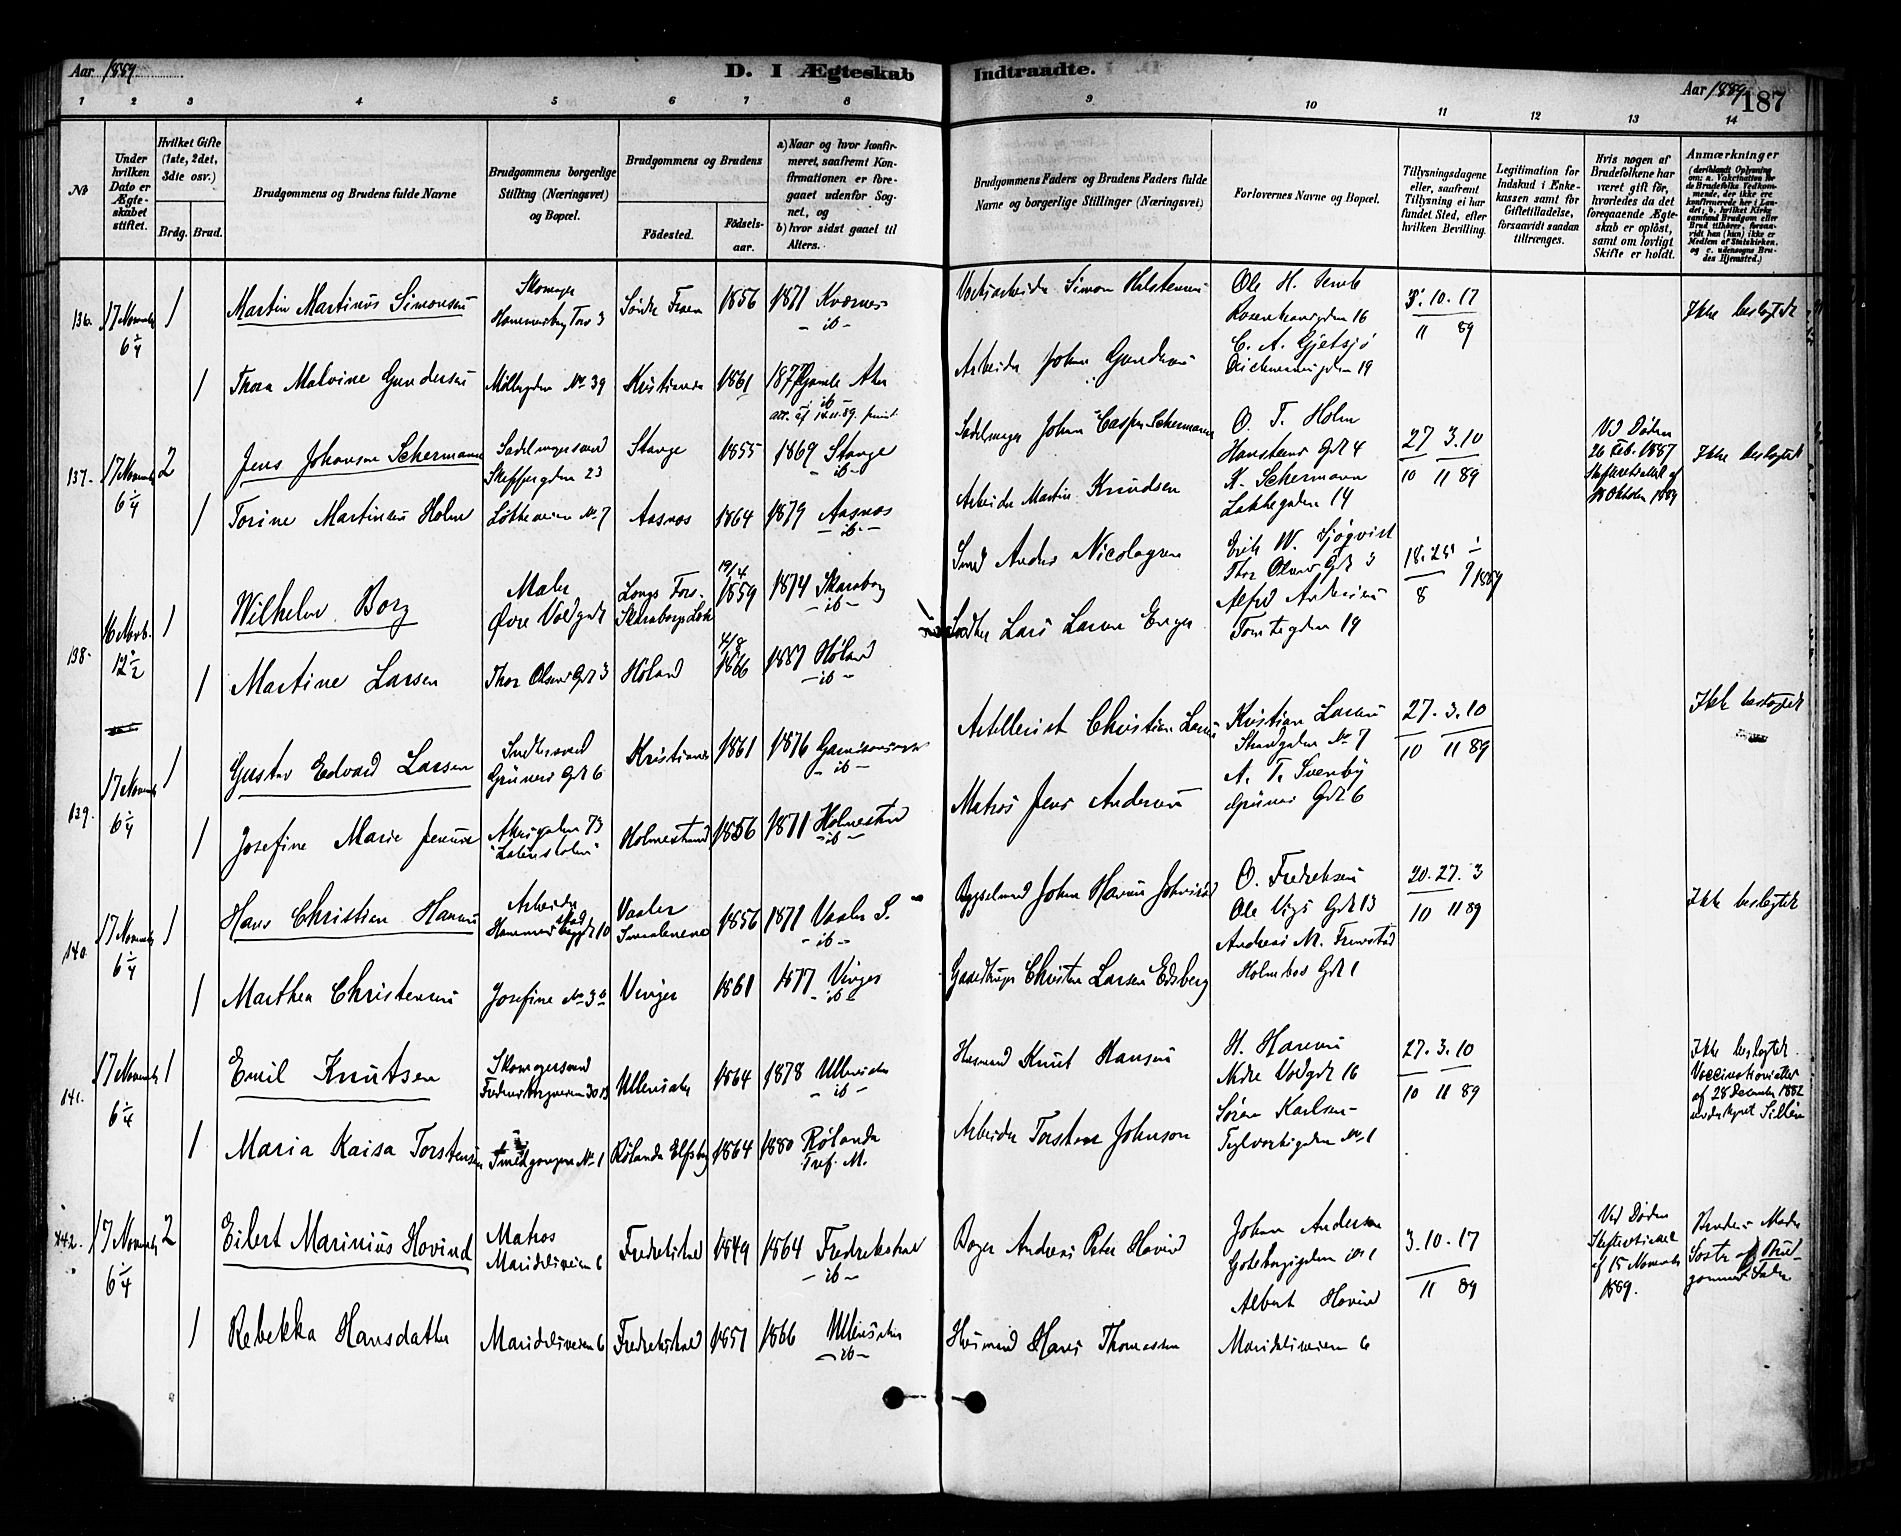 Aar 1889
D. I Ægteskab Indtraadte.
Aar 1889
187
1 2 3 4 5 6 7 8 9 10 11 12 13 14
No
Under hvilken Dato er Ægteskabet stiftet.
Hvilket Gifte (1ste, 2det, 3die osv.)
Brdg. Brud.
Brudgommens og Brudens fulde Navne
Brudgommens borgerlige Stilling (Næringsvei) og Bopæl.
Brudgommens og Brudens
Födested.
Födselsaar.
a) Naar og hvor konfirmeret, saafremt Konfirmationen er foregaaet udenfor Sognet, og
b) hvor sidst gaaet til Alters.
Brudgommens Faders og Brudens Faders fulde Navne og borgerlige Stillinger (Næringsvei)
Forlovernes Navne og Bopæl.
Tillysningsdagene eller, saafremt Tillysning ei har fundet Sted, efter hvilken Bevilling.
Legitimation for Indskud i Enkekassen samt for Giftetilladelse, forsaavidt saadan tiltrænges.
Hvis nogen af Brudefolkene har været gift för, hvorledes da det foregaaende Ægteskab er oplöst, samt om lovligt Skifte er holdt.
Anmærkninger (deriblandt Oplysning om: a. Vakcination for de Brudefolks Vedkommende, der ikke ere konfirmerede her i Landet; b. hvilket Kirkesamfund Brudgom eller Brud tilhörer, forsaavidt han (hun) ikke er Medlem af Statskirken, og c. udensogns Brudes Hjemsted.)
136. 17 Novemb 6 1/4 1 Martin Martinus Simonsen Skomager Hammersborg Torv 3 Söndre Fron 1856 1871 Kvernes - ib - Simon Halstensen Ole H. 16 3. 10. 17 11 89 Ikke beslægtet
1 Thora Malvine Gundersen Möllergaden No 39 Kristiania 1861 1877 Gamle Aker - ib - Arbeider Johan Gundersen C. A. Gjetsjö 19
137. 17 Novemb 6 1/4 2 Jens Johansen Schermann Sadelmagersvend 23 Stange 1855 1869 Stange - ib - Sadelmager Johan Casper Schermann O. T. Holm Hanstens Gd 4 27 3. 10 10 11 89 Ved Döden 26 Feb. 1887 Skifteretsattest af Oktober 1889 Ikke beslægtet
1 Torine Martinsen Holm No 7 Aasnes 1864 1879 Aasnes - ib - Arbeider Martin Knudsen K. Schermann Lakkegaden 14
138. 16 Novb. 12 1/2 1 Wilhelm Borg Maler Övre Voldgd Longs Fors. Skaraborgs Län 19/4 1859 1874 Skaraborg - ib - Smed Anders Nicolaysen Erik W. Sjöqvist Thor Olsens Gd 3 18. 25 1 8 9 1889
1 Martine Larsen Thor Olsens Gd 3 Höland 4/8 1866 1881 Höland - ib - Lars Larsen Enger Alfred Andersen Tomtegaden 19
139. 17 Novemb 6 1/4 1 Gustav Edvard Larsen Snedkersvend Grüners Gd 6 Kristiania 1861 1876 Garnisons - ib - Artillerist Christian Larsen Kristian Larsen No 7 27. 3. 10 10 11 89 Ikke beslægtet
1 Josefine Marie Jensen Akersgaden 73 Holmestrand 1856 1871 Holmestrand - ib - Matros Jens Andersen A. T. Svenby Grüners Gd 6
140. 17 Novemb 6 1/4 1 Hans Christian Hansen Arbeider Vaaler Smaalenene 1856 1871 Vaaler S. - ib - Johan Hansen O. Fredriksen Ole Vigs Gd 13 20. 27. 3 10 11 89 Ikke beslægtet
1 Marthea Christensen Josefine No 3 b Vinger 1861 1877 Vinger - ib - Gaardbruger Christen Larsen Edsberg Andreas M. Holmboes Gd 1
141. 17 Novemb 6 1/4 1 Emil Knutsen Skomagersvend Ullensaker 1864 1878 Ullensaker - ib - Husmand Knut Hansen H. Hansen Nedre Voldgd 16 27. 3. 10 10 11 89 Ikke beslægtet. Vaccinationsattest af 28 December 1882 underskrevet Sillén
1 Maria Kaisa Torstensen No 1 Rölanda Elfsborg 1864 1880 Rölanda Pref. M. Arbeider Torsten Johnson Sören Karlsen Teglverksgaden No 1
142. 17 Novemb 6 1/4 2 Eilert Marinius Hovind Matros Maridalsveien 6 Fredrikstad 1849 1864 Fredrikstad - ib - Bager Andreas Peter Hovind Johan Andersen Göteborggaden No 1 3. 10. 17 11 89 Ved Döden Skifteretsattest af 15 November 1889. Brudens Moder Söster af Brudgommens Fader
1 Rebekka Hansdatter Maridalsveien 6 Fredrikstad 1851 1866 Ullensaker - ib - Husmand Hans Thomassen Albert Hovind Maridalsveien 6